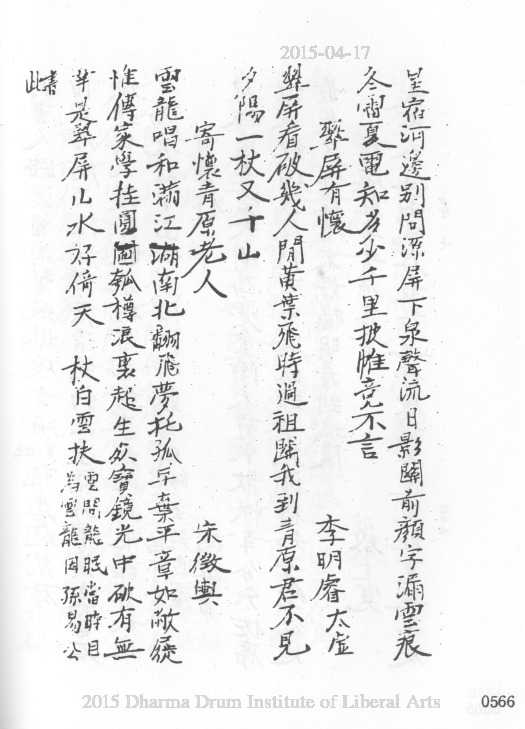 2015-04-17
星宿河邊別問源屏下泉聲流日影關前顏字漏雲痕
冬雷夏電知多少千里披帷竟不言
翠屏有懷 李明睿太虛
翠屏看破幾人閒黃葉飛時過祖關我到青原君不見
夕陽一杖又千山
寄懷青原老人 宋徵輿
雲龍唱和滿江湖南北翻飛夢托孤平章如敝屣
惟傳家學挂圖瓠樽浪裏起生眾寶鏡光中破有無
是翠屏山水好倚天杖白雲扶雲間龍眠當時目
為雲龍因孫易公
書此
2015 Dharma Drum Institute of Liberal Arts
0566